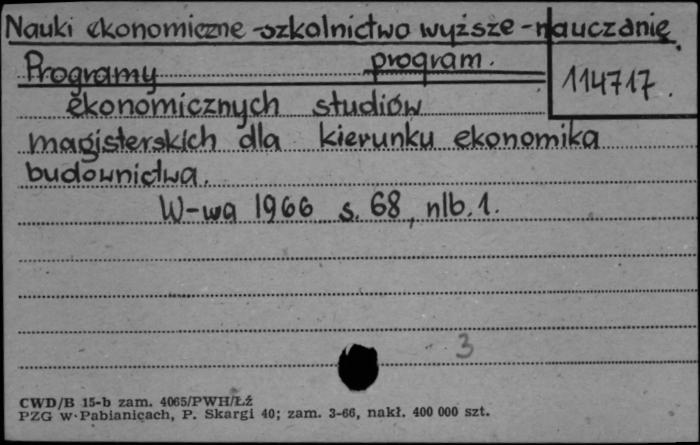 Nauki ekonomiczne - szkolnictwo wyższe - nauczanie
Programy program.
114717.
ekonomicznych studiów
magisterskich dla kierunku ekonomika
budownictwa.
W-wa 1966 s. 68, nlb. 1.
3
CWD/B 15-b zam. 4065/PWH/Łź
PZG w Pabianicach, P. Skargi 40; zam. 3-66, nakł. 400 000 szt.